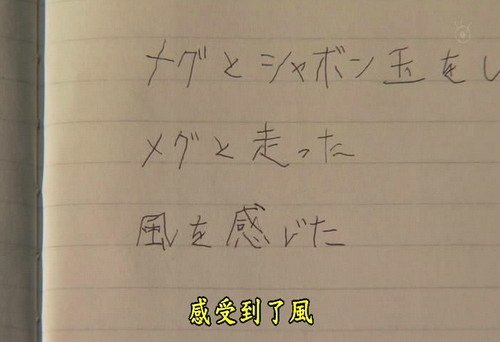 メグとシャボン玉をし
メグと走った
風を感じた
感受到了風